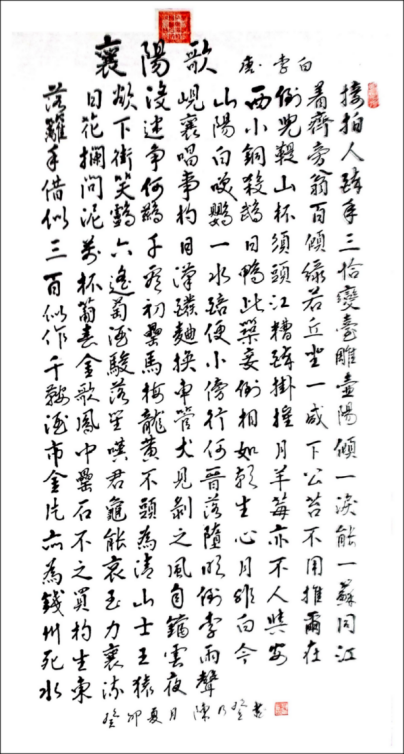 襄陽歌 唐 李白
落日欲没峴山西倒着接
籬花下迷襄陽小兒齊拍
手攔街爭唱白銅鞮旁人
借問笑何事笑殺山翁醉
似泥鸕鶿杓鸚鵡杯百年
三萬六千日一日須傾三
百杯遙看漢水鴨頭綠恰
似葡萄初醱醅此江若變
作春酒壘麯便築糟丘臺
千金駿馬換小妾笑坐雕
鞍歌落梅車傍倒掛一壺
酒鳳笙龍管行相催咸陽
市中嘆黃犬何如月下傾
金罍君不見晉朝羊公一
片石龜頭剝落生莓苔淚
亦不能為之墮心亦不能
為之哀清風明月不用一
錢買玉山自倒非人推蘇
州杓力士鐺李白與爾同
死生襄王雲雨今安在江
水東流猿夜聲
癸卯夏月 陳乃登書